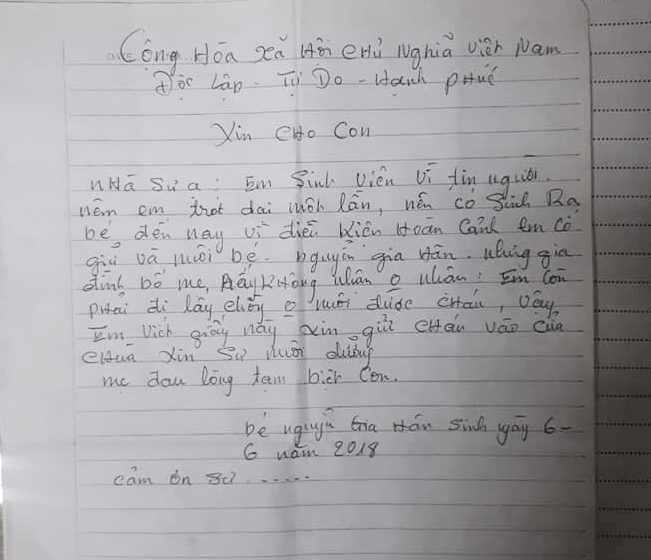 Cộng Hòa Xã Hội Chủ Nghĩa Việt Nam
Độc Lập - Tự Do - Hạnh Phúc
Xin Cho Con
Nhà Sư ạ: Em Sinh Viên Vì tin người.
nêm em trót dại một lần, nên có Sinh Ra
bé đến nay vì điều kiên Hoàn Cảnh em Cố
giữ và nuôi bé. nguyễn gia Hân. nhưng gia
đình bố mẹ, Đấy không nhân o nhân: Em Còn
phải đi lấy chồng o nuôi được cháu, vậy
Em viết giấy này xin gửi cháu vào cửa
chùa xin Sư nuôi dưỡng
mẹ đau lòng tạm biệt Con.
bé nguyễn Gia Hân sinh ngày 6-
6 năm 2018
cảm ơn sư ......